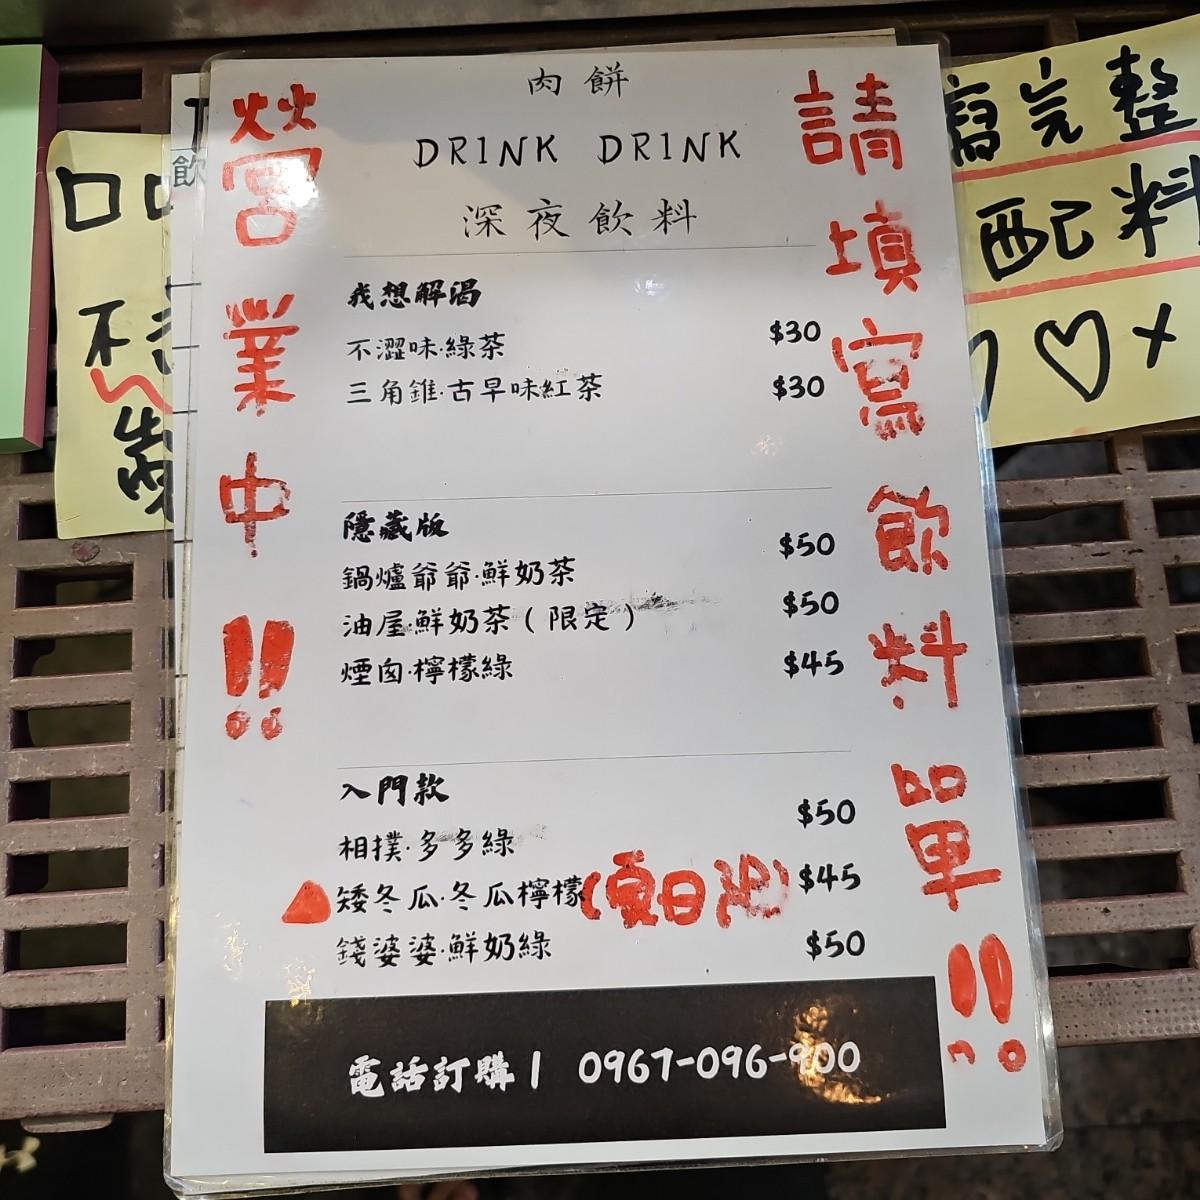 肉餅
DRINK DRINK
深夜飲料
我想解渴
不澀味·綠茶 $30
三角錐·古早味紅茶 $30
隱藏版
鍋爐爺爺·鮮奶茶 $50
油屋·鮮奶茶(限定) $50
煙囪·檸檬綠 $45
入門款
相撲·多多綠 $50
矮冬瓜·冬瓜檸檬(夏日 $45
錢婆婆·鮮奶綠 $50
電話訂購| 0967-096-900
營業中!!
請填寫飲料單!!
飲
口
不
寫完整
配料
♡+